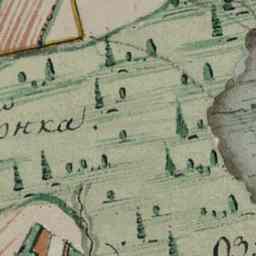 онка.
Оз.